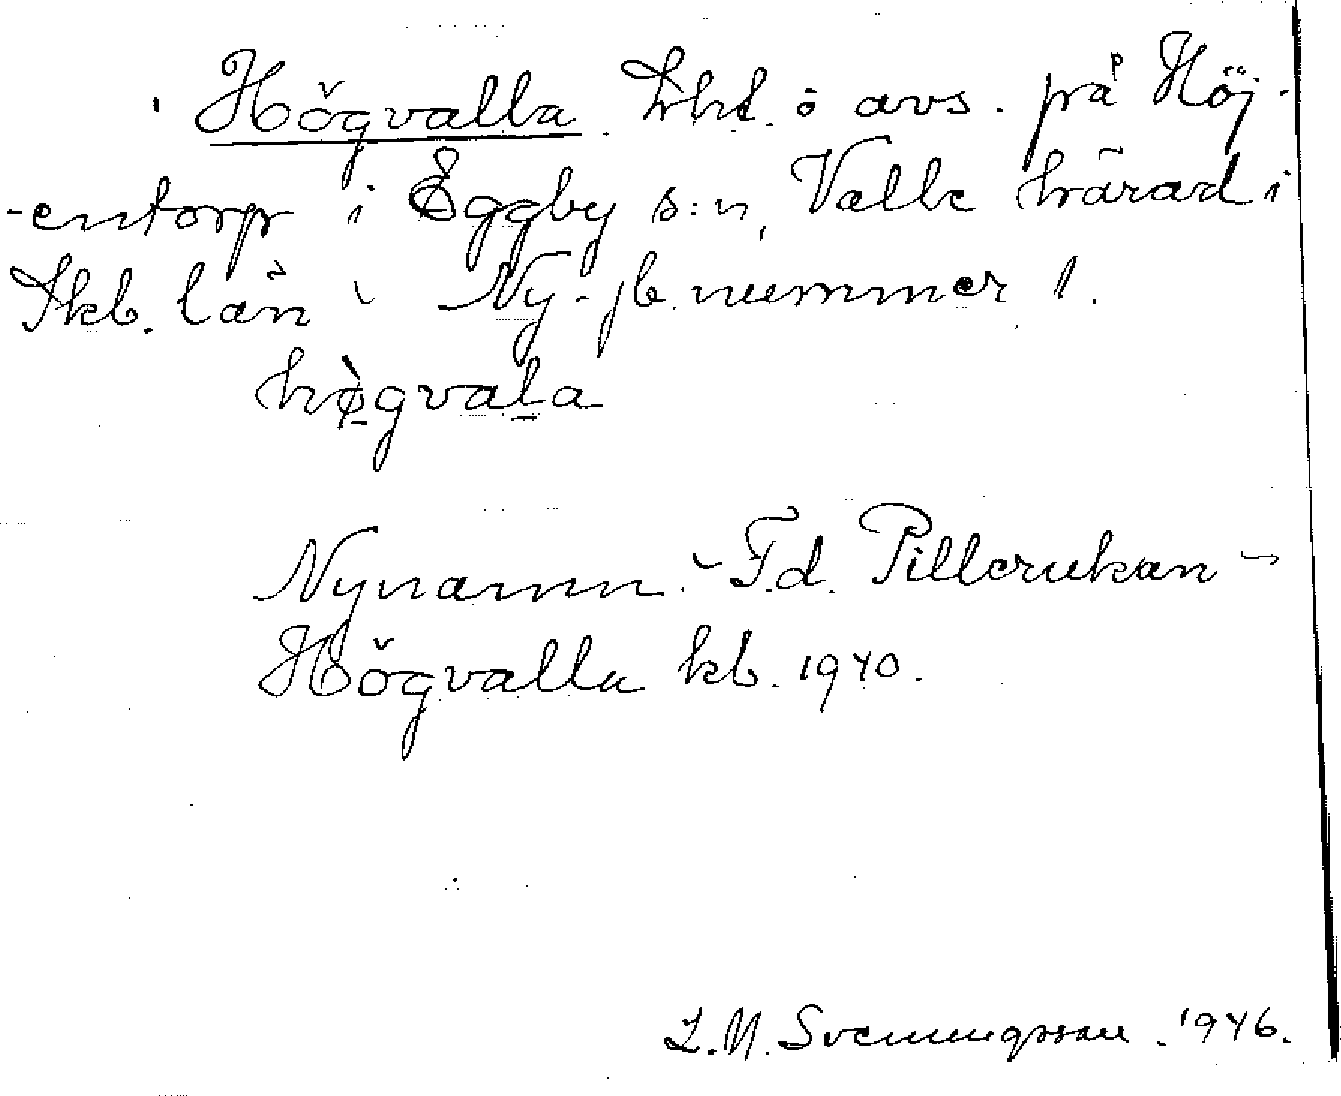 Högvalla lht. o avs. på Höj-
-entorp i Eggby s:n, Valle härad i
Skb. län - Ny-jb. nummer 1.
hø̀gvala
Nynamn. - F.d. Pillerukan -
Högvalla kb. 1940.
L.M. Svenungsson. 1946.